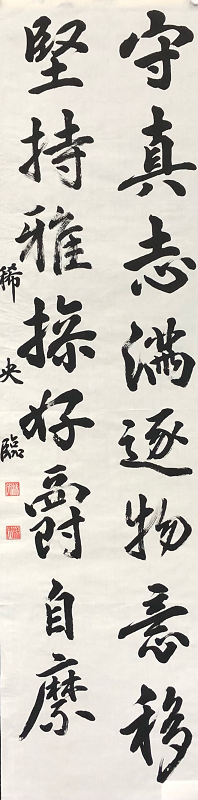 守真志滿逐物意移
堅持雅操好爵自縻
稀央臨